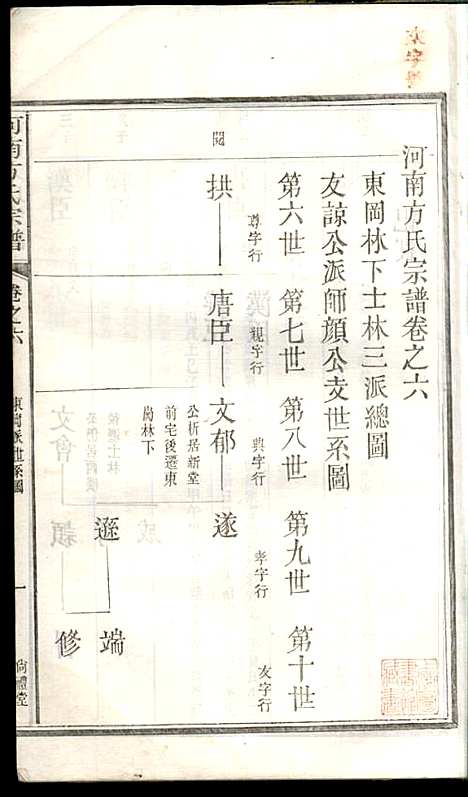 河南方氏宗譜卷之六
東岡林下士林三派總圖
友諒公派師顔公支世系圖
第六世 尊字行
第七世 親字行
第八世 典字行
第九世 孝字行
第十世 友字行
閱
拱
唐臣
文郁
公析居新堂
前宅後遷東
崗林下
遂
遜
端
修
河南方氏宗譜
卷之六
東岡派世系圖
一
尙禮堂